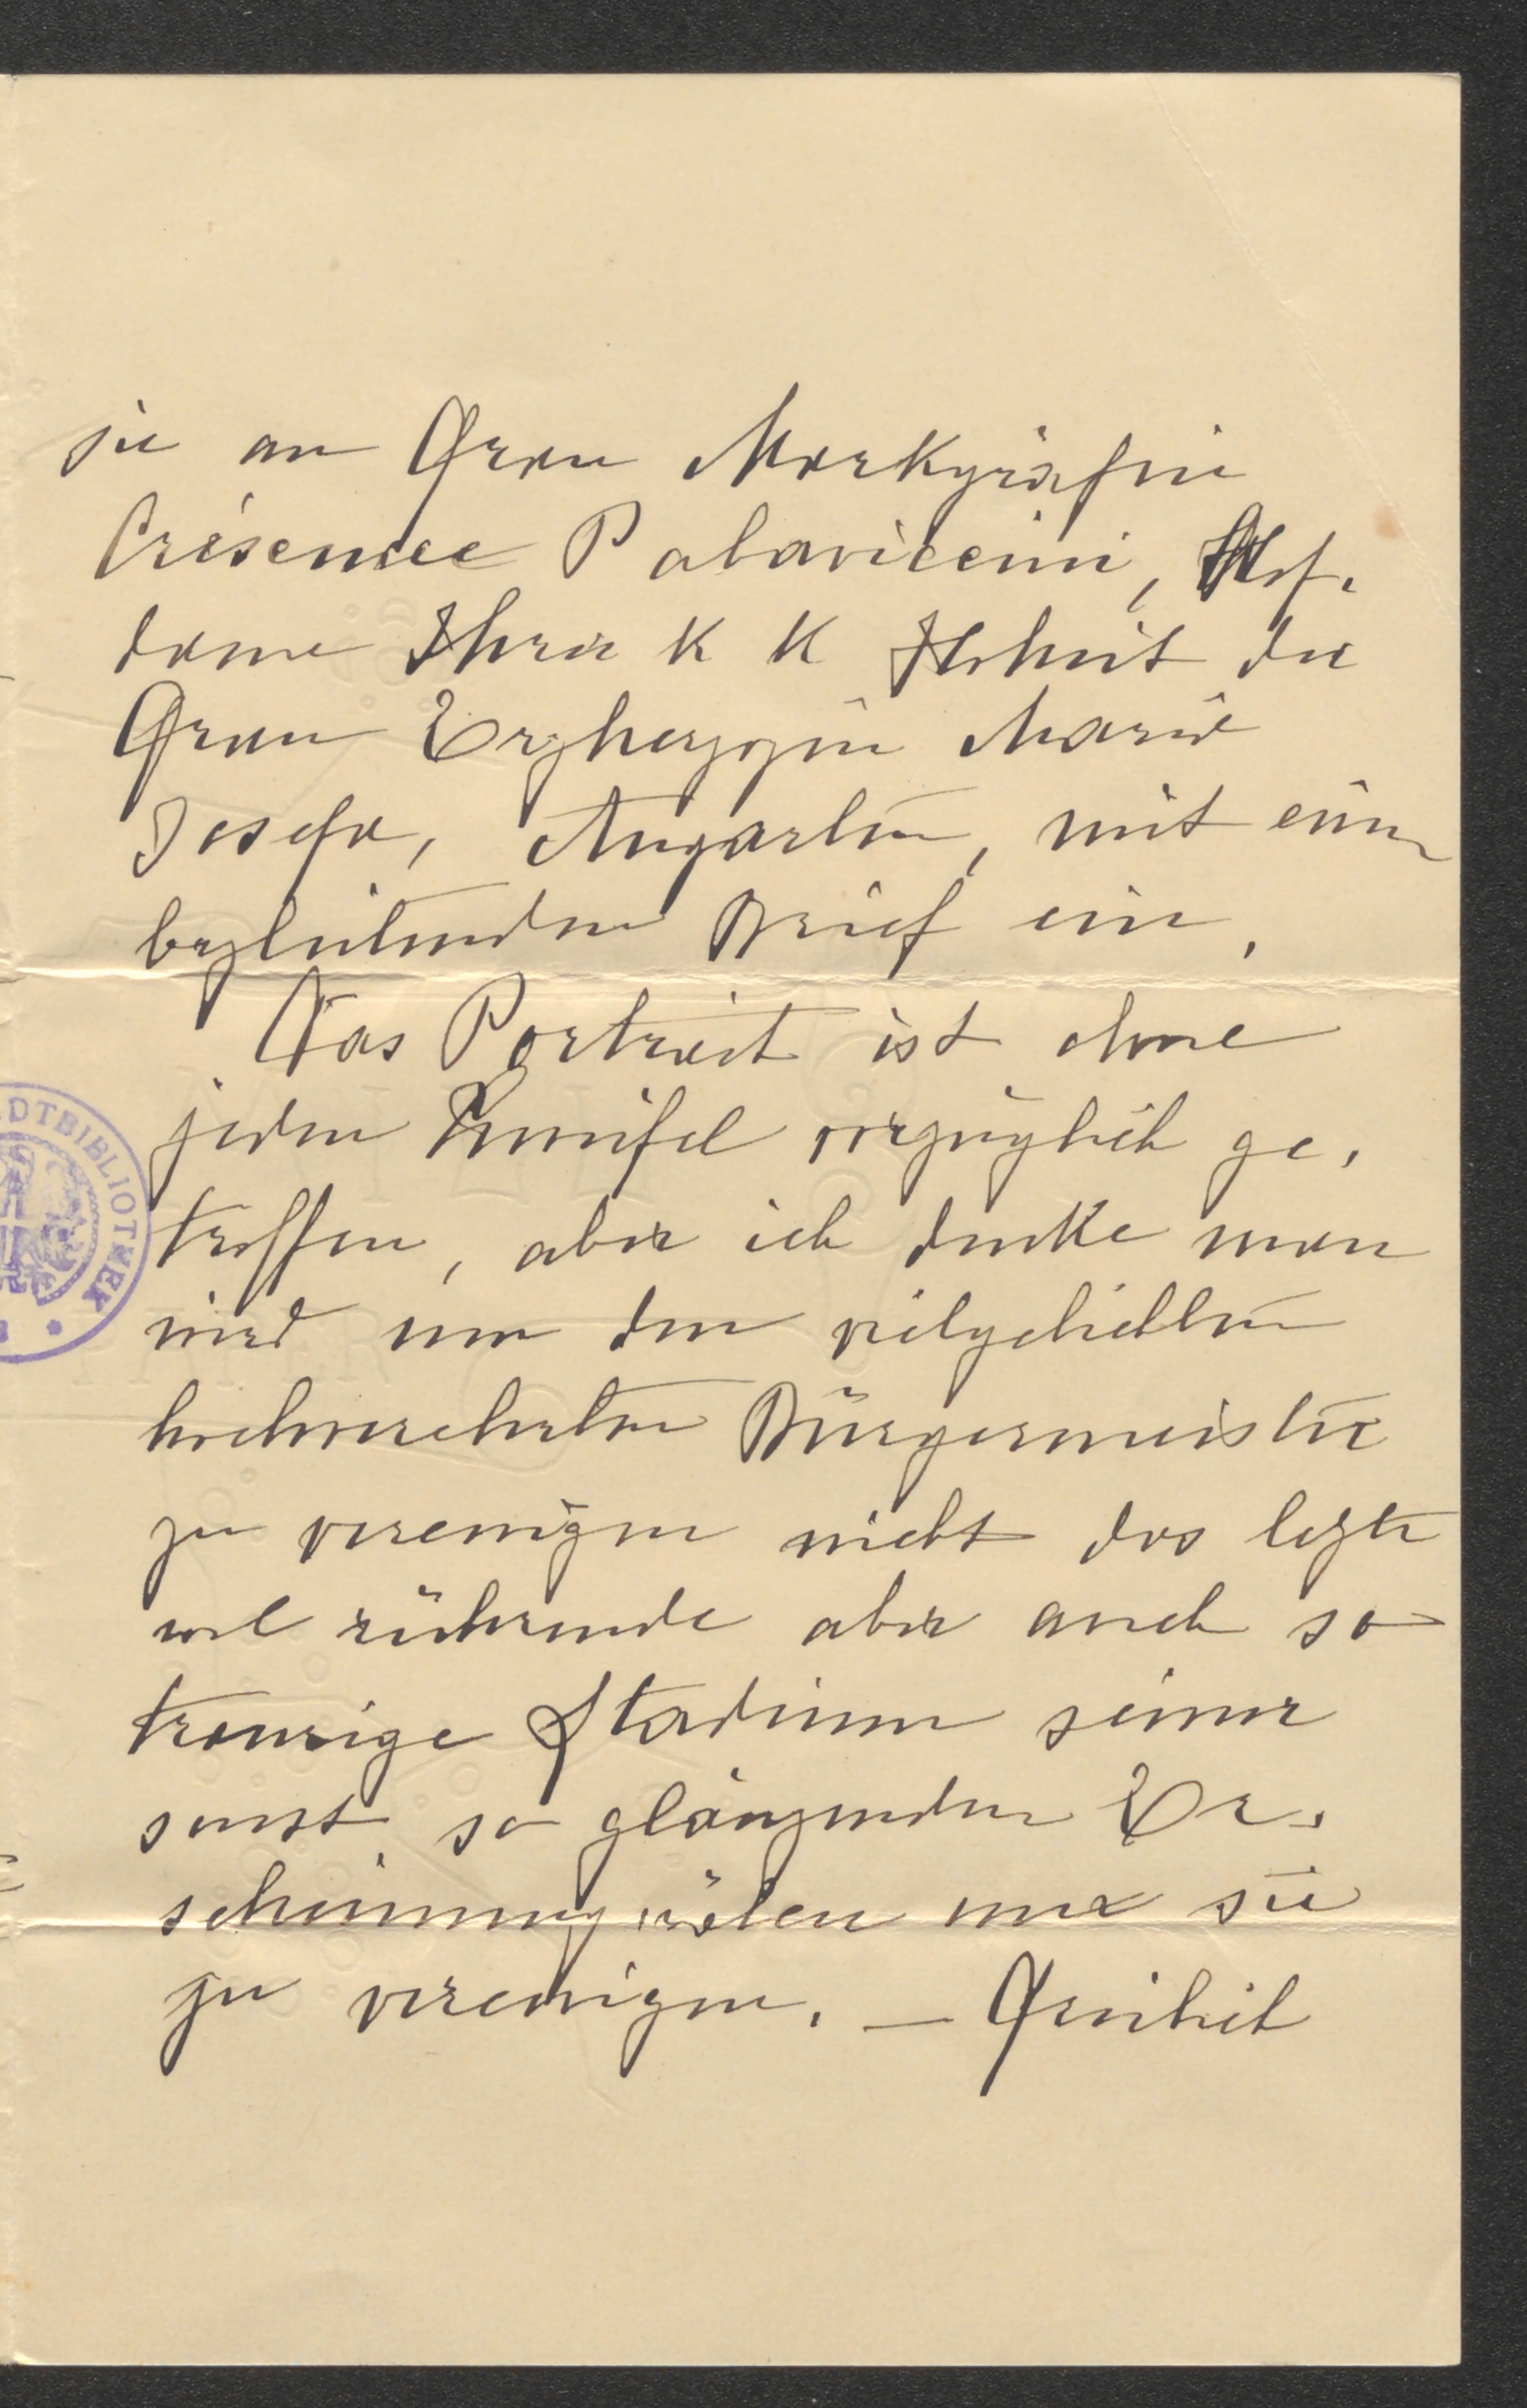 sie an Frau Markgräfin
Crésence Palavicini, Hof-
dame Ihrer K K Hoheit der
Frau Erzherzogin Maria
Josefa, Augarten, mit einem
begleitenden Brief ein.
Das Portrait ist ohne
jeden Zweifel vorzüglich ge-
troffen, aber ich denke man
wird um den vielgeliebten
hochverehrten Bürgermeister
zu verewigen nicht das letzte
wol rührende aber auch so
traurige Stadium seiner
sonst so glänzenden Er-
scheinung wählen um sie
zu verewigen. — Freilich
DTBIBLIOTHEK